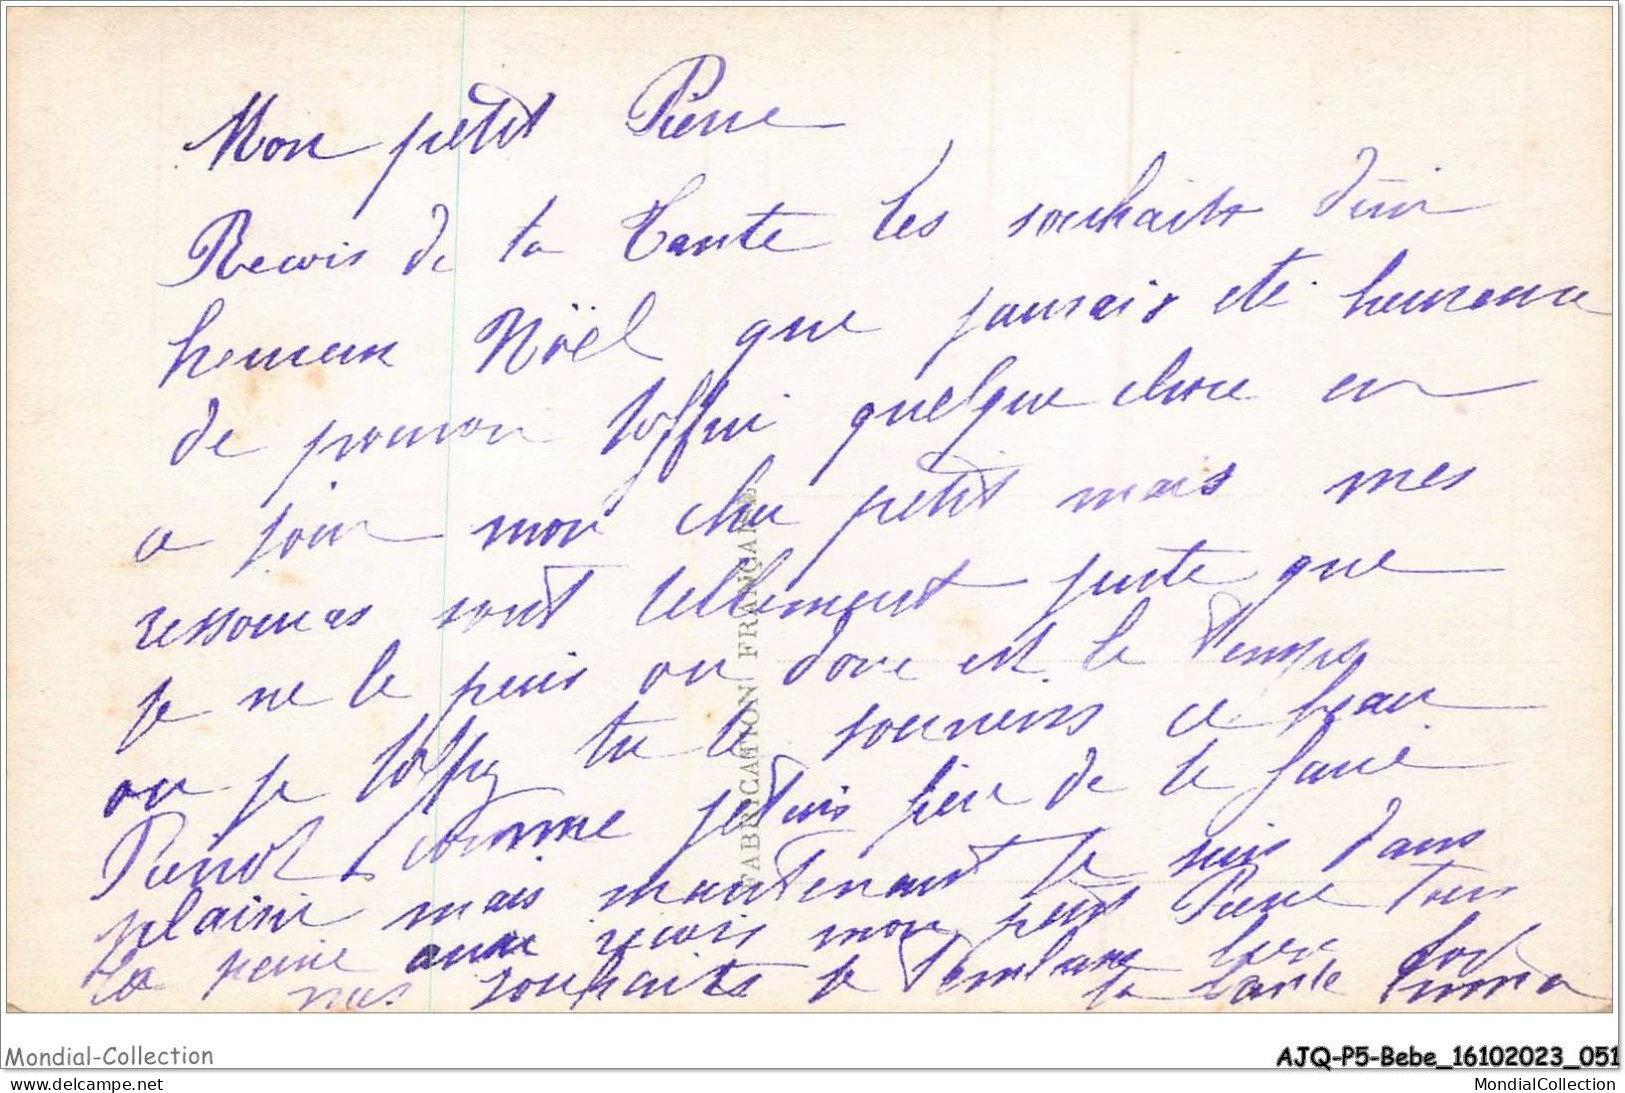 Mon petit Pierre
Recois de ta Tante les souhaits d'un
heureux Nöel que jaurais eté heureuse
de pouvoir toffrir quelque chose en
ce jour mon cher petit mais mes
ressources sont tellement juste que
je ne le puis ou donc est le temps
ou je toffr tu te souviens ce beau
Pierrot comme jetais fier de te faire
plaisir mais maintenant je suis dans
la peine aussi recois mon petit Pierre tous
mes souhaits je t'embrasse bien fort
ta tante
FABRICATION FRANÇAISE
Mondial-Collection
AJQ-P5-Bebe_16102023_051
www.delcampe.net
MondialCollection